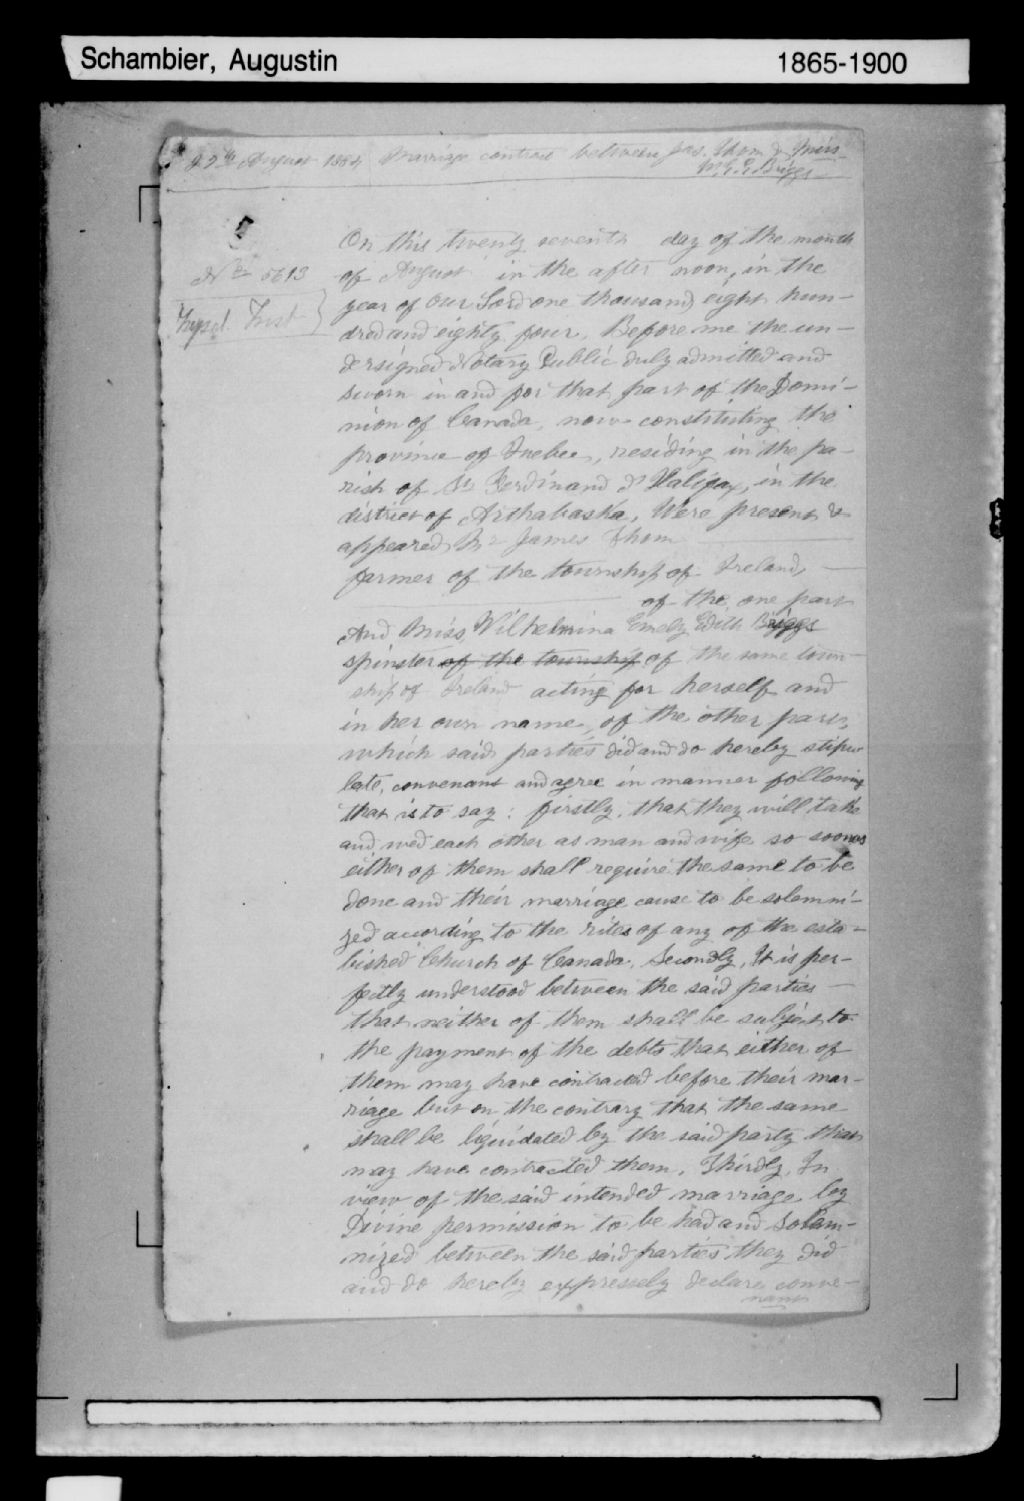 Schambier, Augustin 1865-1900
27th August 1884 Marriage contract between Jas. Thom & Miss
W. E. E. Briggs
No 5613
On this twenty seventh day of the month
of August in the after noon, in the
year of Our Lord one thousand eight hun-
dred and eighty four, Before me the un-
dersigned Notary Public duly admitted and
sworn in and for that part of the Domi-
nion of Canada, now constituting the
province of Quebec, residing in the pa-
rish of St Ferdinand d'Halifax, in the
district of Arthabaska, Were present &
appeared Mr James Thom
farmer of the township of Ireland,
of the one part
And Miss Wilhelmina Emely Edith Briggs
spinster of the township of the same town-
ship of Ireland acting for herself and
in her own name, of the other part,
which said parties did and do hereby stipu-
late, convenant and agree in manner following
that is to say: firstly, that they will take
and wed each other as man and wife so soon as
either of them shall require the same to be
done and their marriage cause to be solemni-
zed according to the rites of any of the esta-
bished Church of Canada. Secondly, It is per-
fectly understood between the said parties
that neither of them shall be subject to
the payment of the debts that either of
them may have contracted before their mar-
riage but on the contrary that the same
shall be liquidated by the said party that
may have contracted them. Thirdly, In
view of the said intended marriage by
Divine permission to be had and solem-
nized between the said parties they did
and do hereby expressely declare, conve-
nant